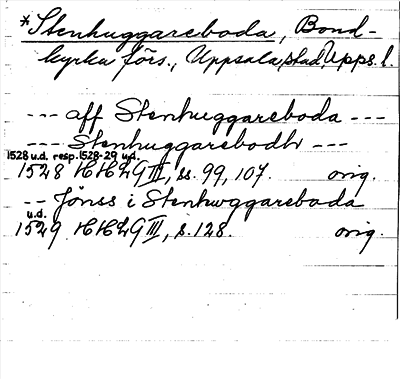 *Stenhuggareboda, Bond-
kyrka förs., Uppsala stad, Upps. l.
--- aff Stenhuggareboda ---
--- Stenhuggarebodh ---
1528 u.d. resp. 1528-29 u.d.
1528 HHLG III, ss. 99, 107. orig.
-- Jönss i Stenhwggareboda
u.d.
1529 HHLG III, s. 128. orig.